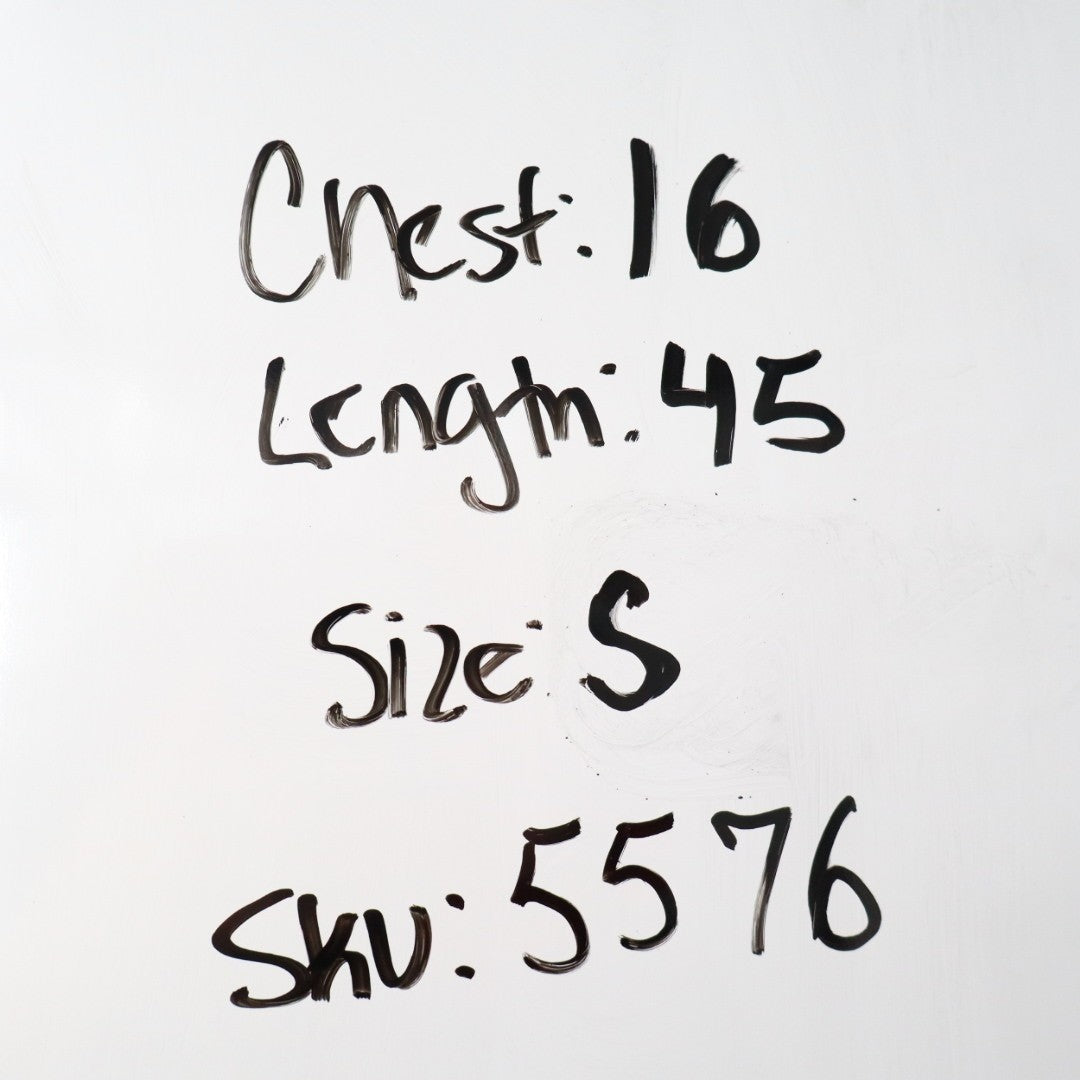 Chest: 16
Length: 45
Size: S
Sku: 5576